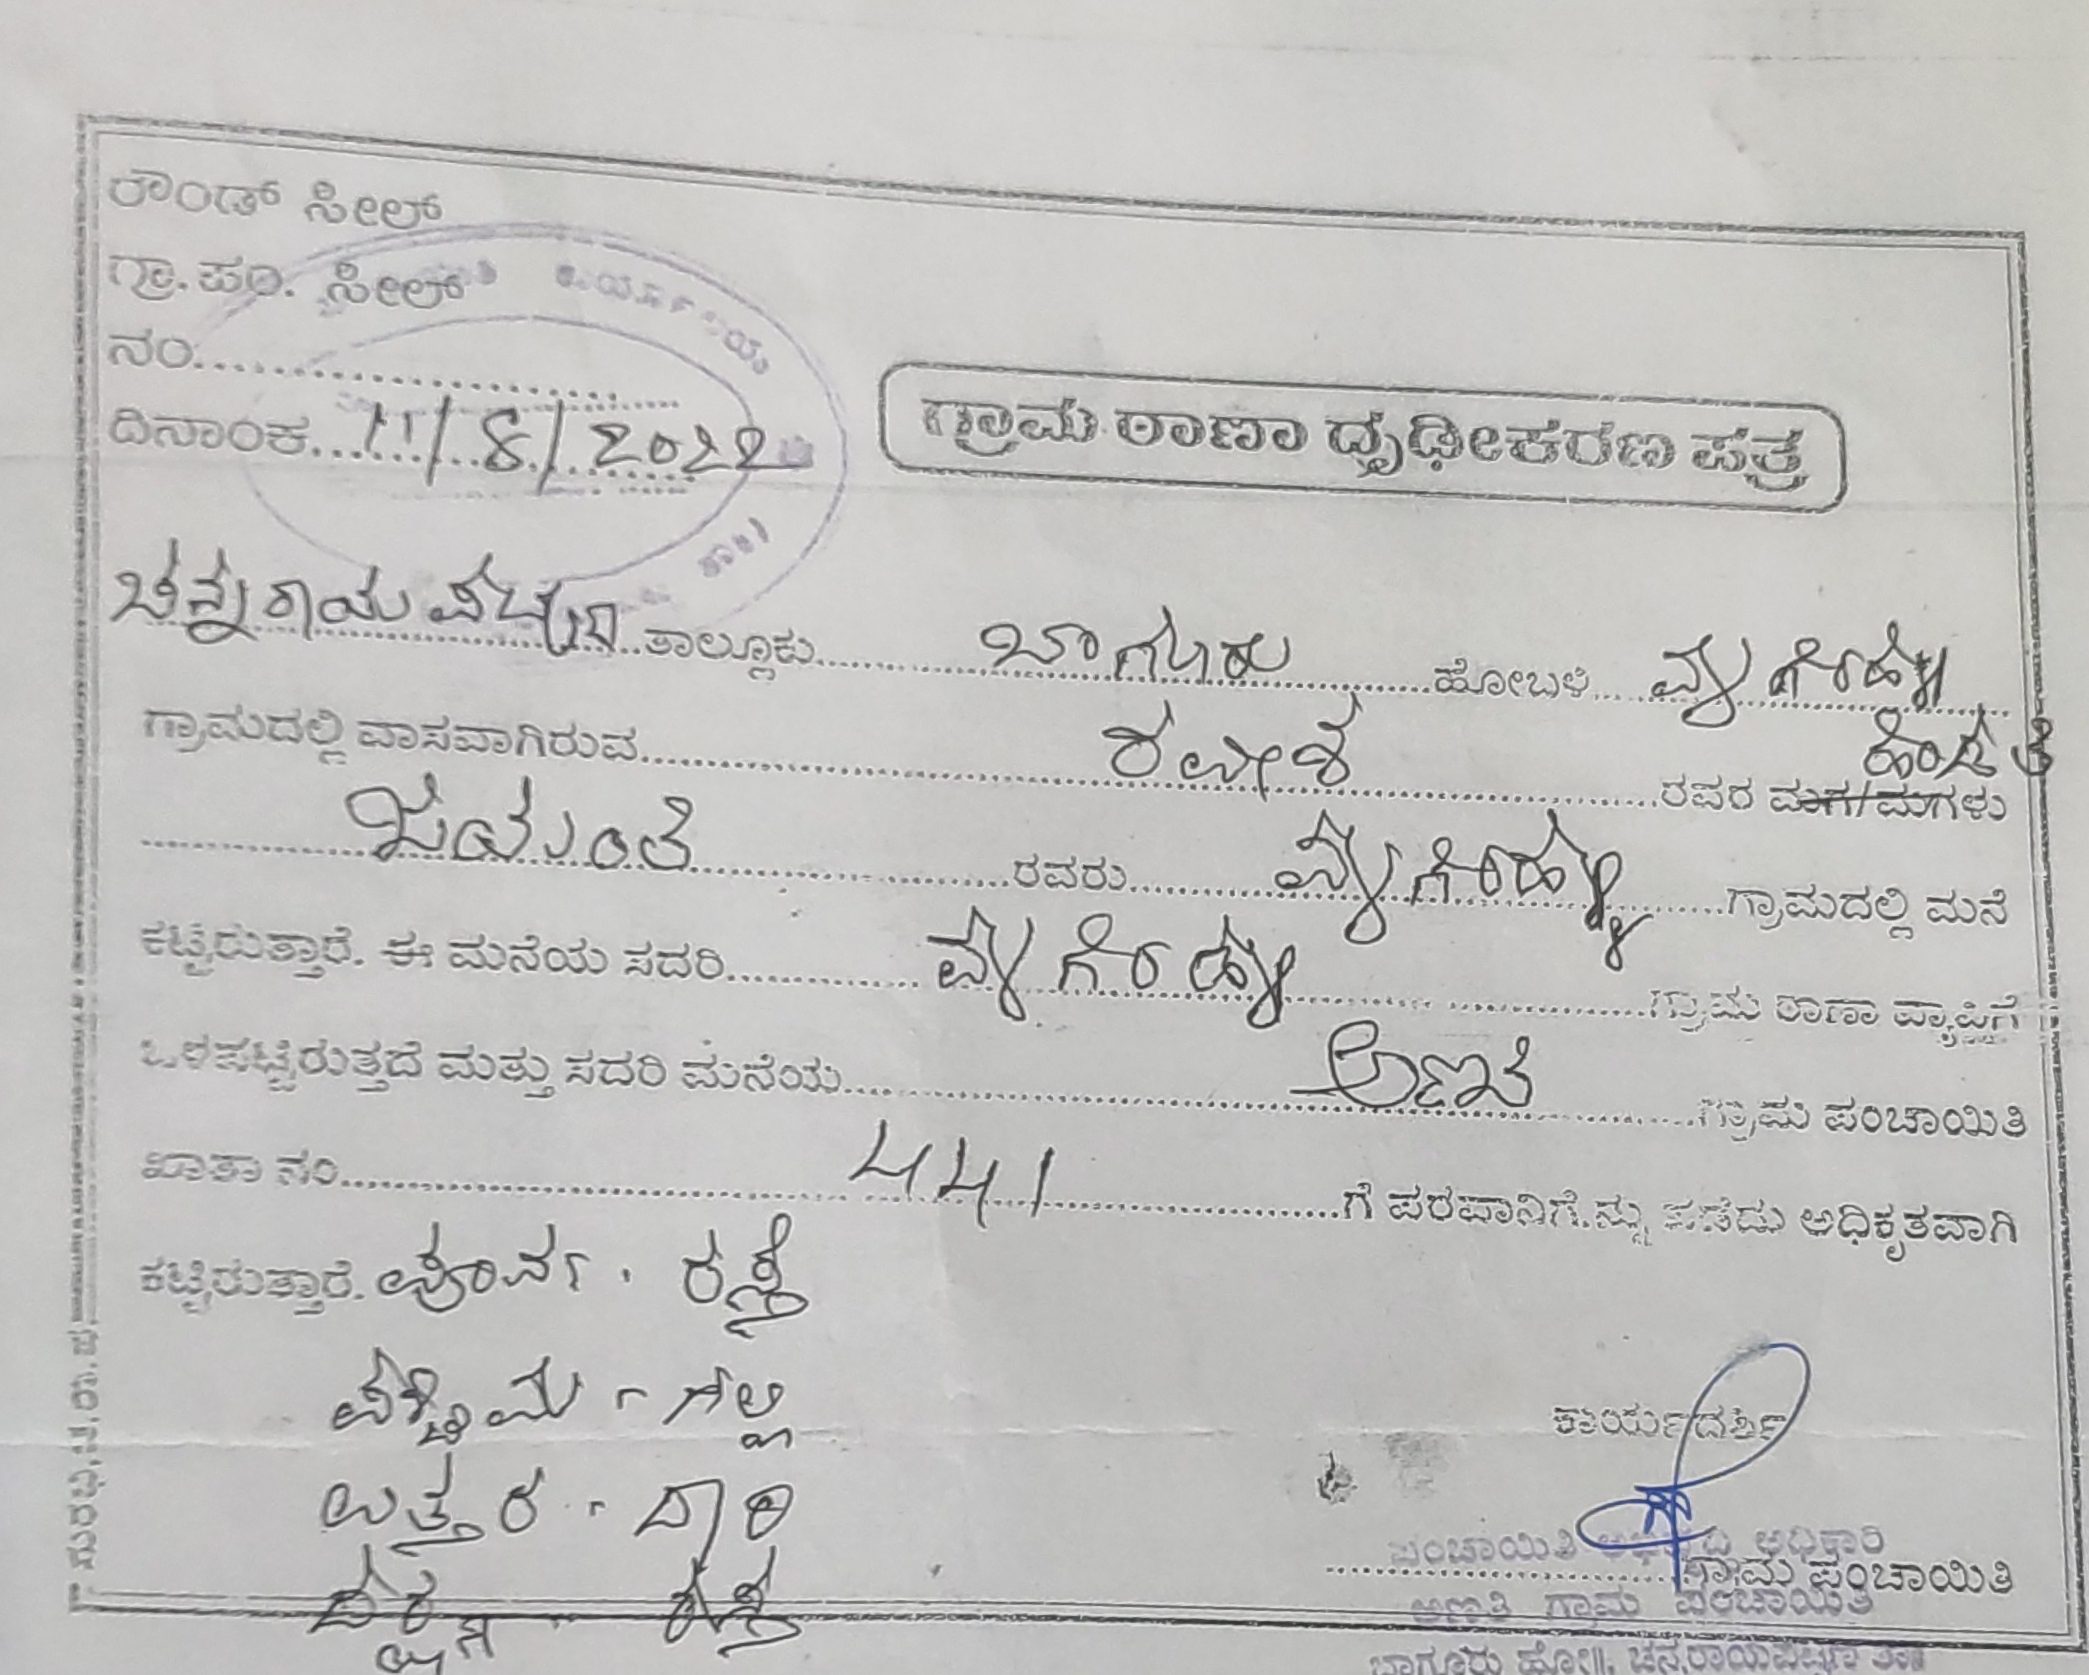 ರೌಂಡ್ ಸೀಲ್
ಗ್ರಾ. ಪಂ. ಸೀಲ್
ನಂ.
ದಿನಾಂಕ 11/8/2022
ಗ್ರಾಮ ಠಾಣಾ ಧೃಢೀಕರಣ ಪತ್ರ
ಚನ್ನರಾಯಪಟ್ಟಣ ತಾಲ್ಲೂಕು ಬಾಗೂರು ಹೋಬಳಿ
ಗ್ರಾಮದಲ್ಲಿ ವಾಸವಾಗಿರುವ ರವೀಶ ರವರ ಮಗ/ಮಗಳು ಹೆಂಡತಿ
ಜಯಂತಿ ರವರು ಗ್ರಾಮದಲ್ಲಿ ಮನೆ
ಕಟ್ಟಿರುತ್ತಾರೆ. ಈ ಮನೆಯ ಸದರಿ ಗ್ರಾಮ ಠಾಣಾ ವ್ಯಾಪ್ತಿಗೆ
ಒಳಪಟ್ಟಿರುತ್ತದೆ ಮತ್ತು ಸದರಿ ಮನೆಯ ಅಣತಿ ಗ್ರಾಮ ಪಂಚಾಯಿತಿ
ಖಾತಾ ನಂ. 441 ಗೆ ಪರವಾನಿಗೆಯನ್ನು ಪಡೆದು ಅಧಿಕೃತವಾಗಿ
ಕಟ್ಟಿರುತ್ತಾರೆ. ಪೂರ್ವ - ರಸ್ತೆ
ಪಶ್ಚಿಮ - ಗಲ್ಲಿ
ಉತ್ತರ - ದಾರಿ
ದಕ್ಷಿಣ - ರಸ್ತೆ
ಕಾರ್ಯದರ್ಶಿ
ಪಂಚಾಯಿತಿ ಅಭಿವೃದ್ಧಿ ಅಧಿಕಾರಿ
ಗ್ರಾಮ ಪಂಚಾಯಿತಿ
ಅಣತಿ ಗ್ರಾಮ ಪಂಚಾಯಿತಿ
ಬಾಗೂರು ಹೋ||, ಚನ್ನರಾಯಪಟ್ಟಣ ತಾ||